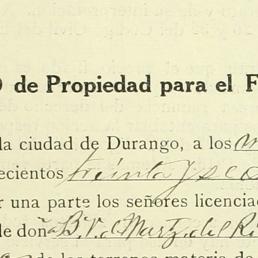 de Propiedad para el F
la ciudad de Durango, a los
ecientos treinta y sc
r una parte los señores licencia
de doña B. V. d Martz. del Ri
de los terrenos materia de